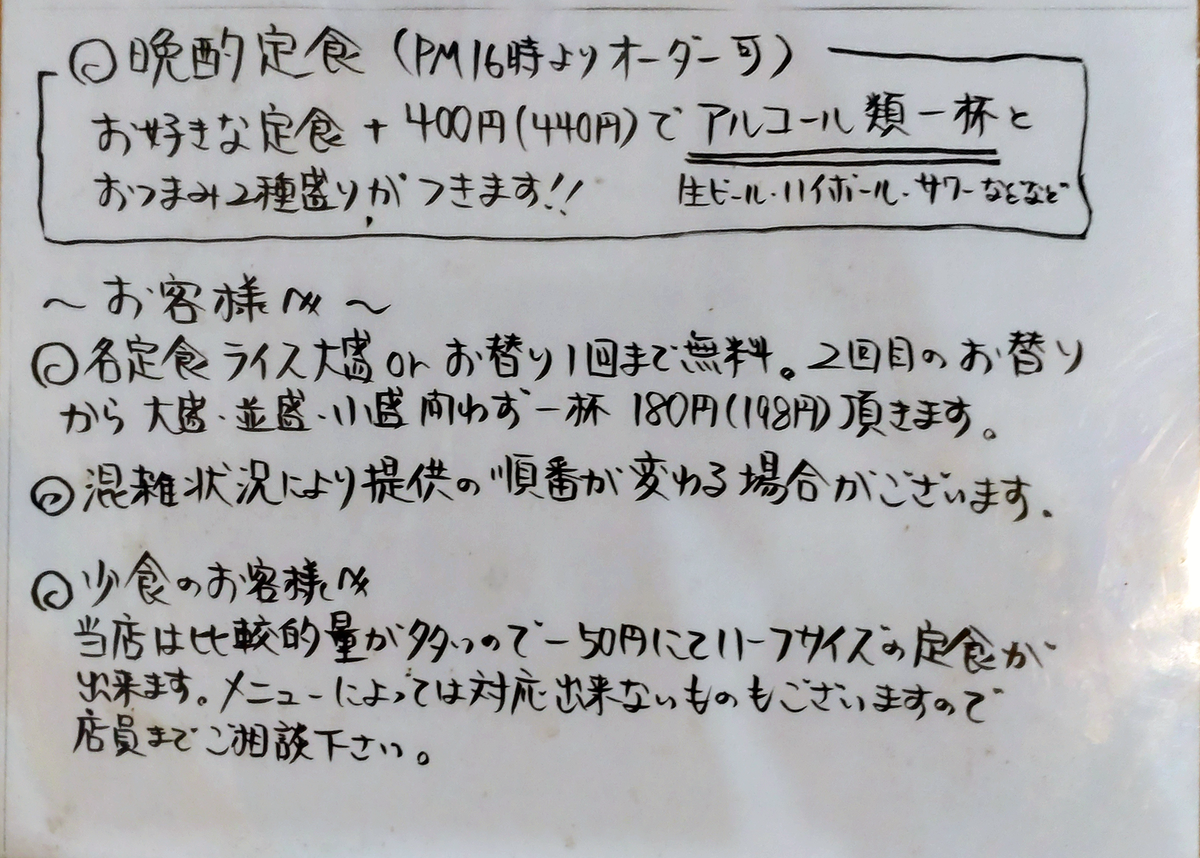 ◎晩酌定食（PM16時よりオーダー可）
お好きな定食+400円(440円)でアルコール類一杯と
おつまみ2種盛りがつきます!!
生ビール・ハイボール・サワーなどなど
〜お客様へ〜
◎各定食ライス大盛orお替り1回まで無料。2回目のお替り
から大盛・並盛・小盛問わず一杯180円(198円)頂きます。
◎混雑状況により提供の順番が変わる場合がございます.
◎少食のお客様へ
当店は比較的量が多いので−50円にてハーフサイズの定食が
出来ます。メニューによっては対応出来ないものもございますので
店員までご相談下さい。